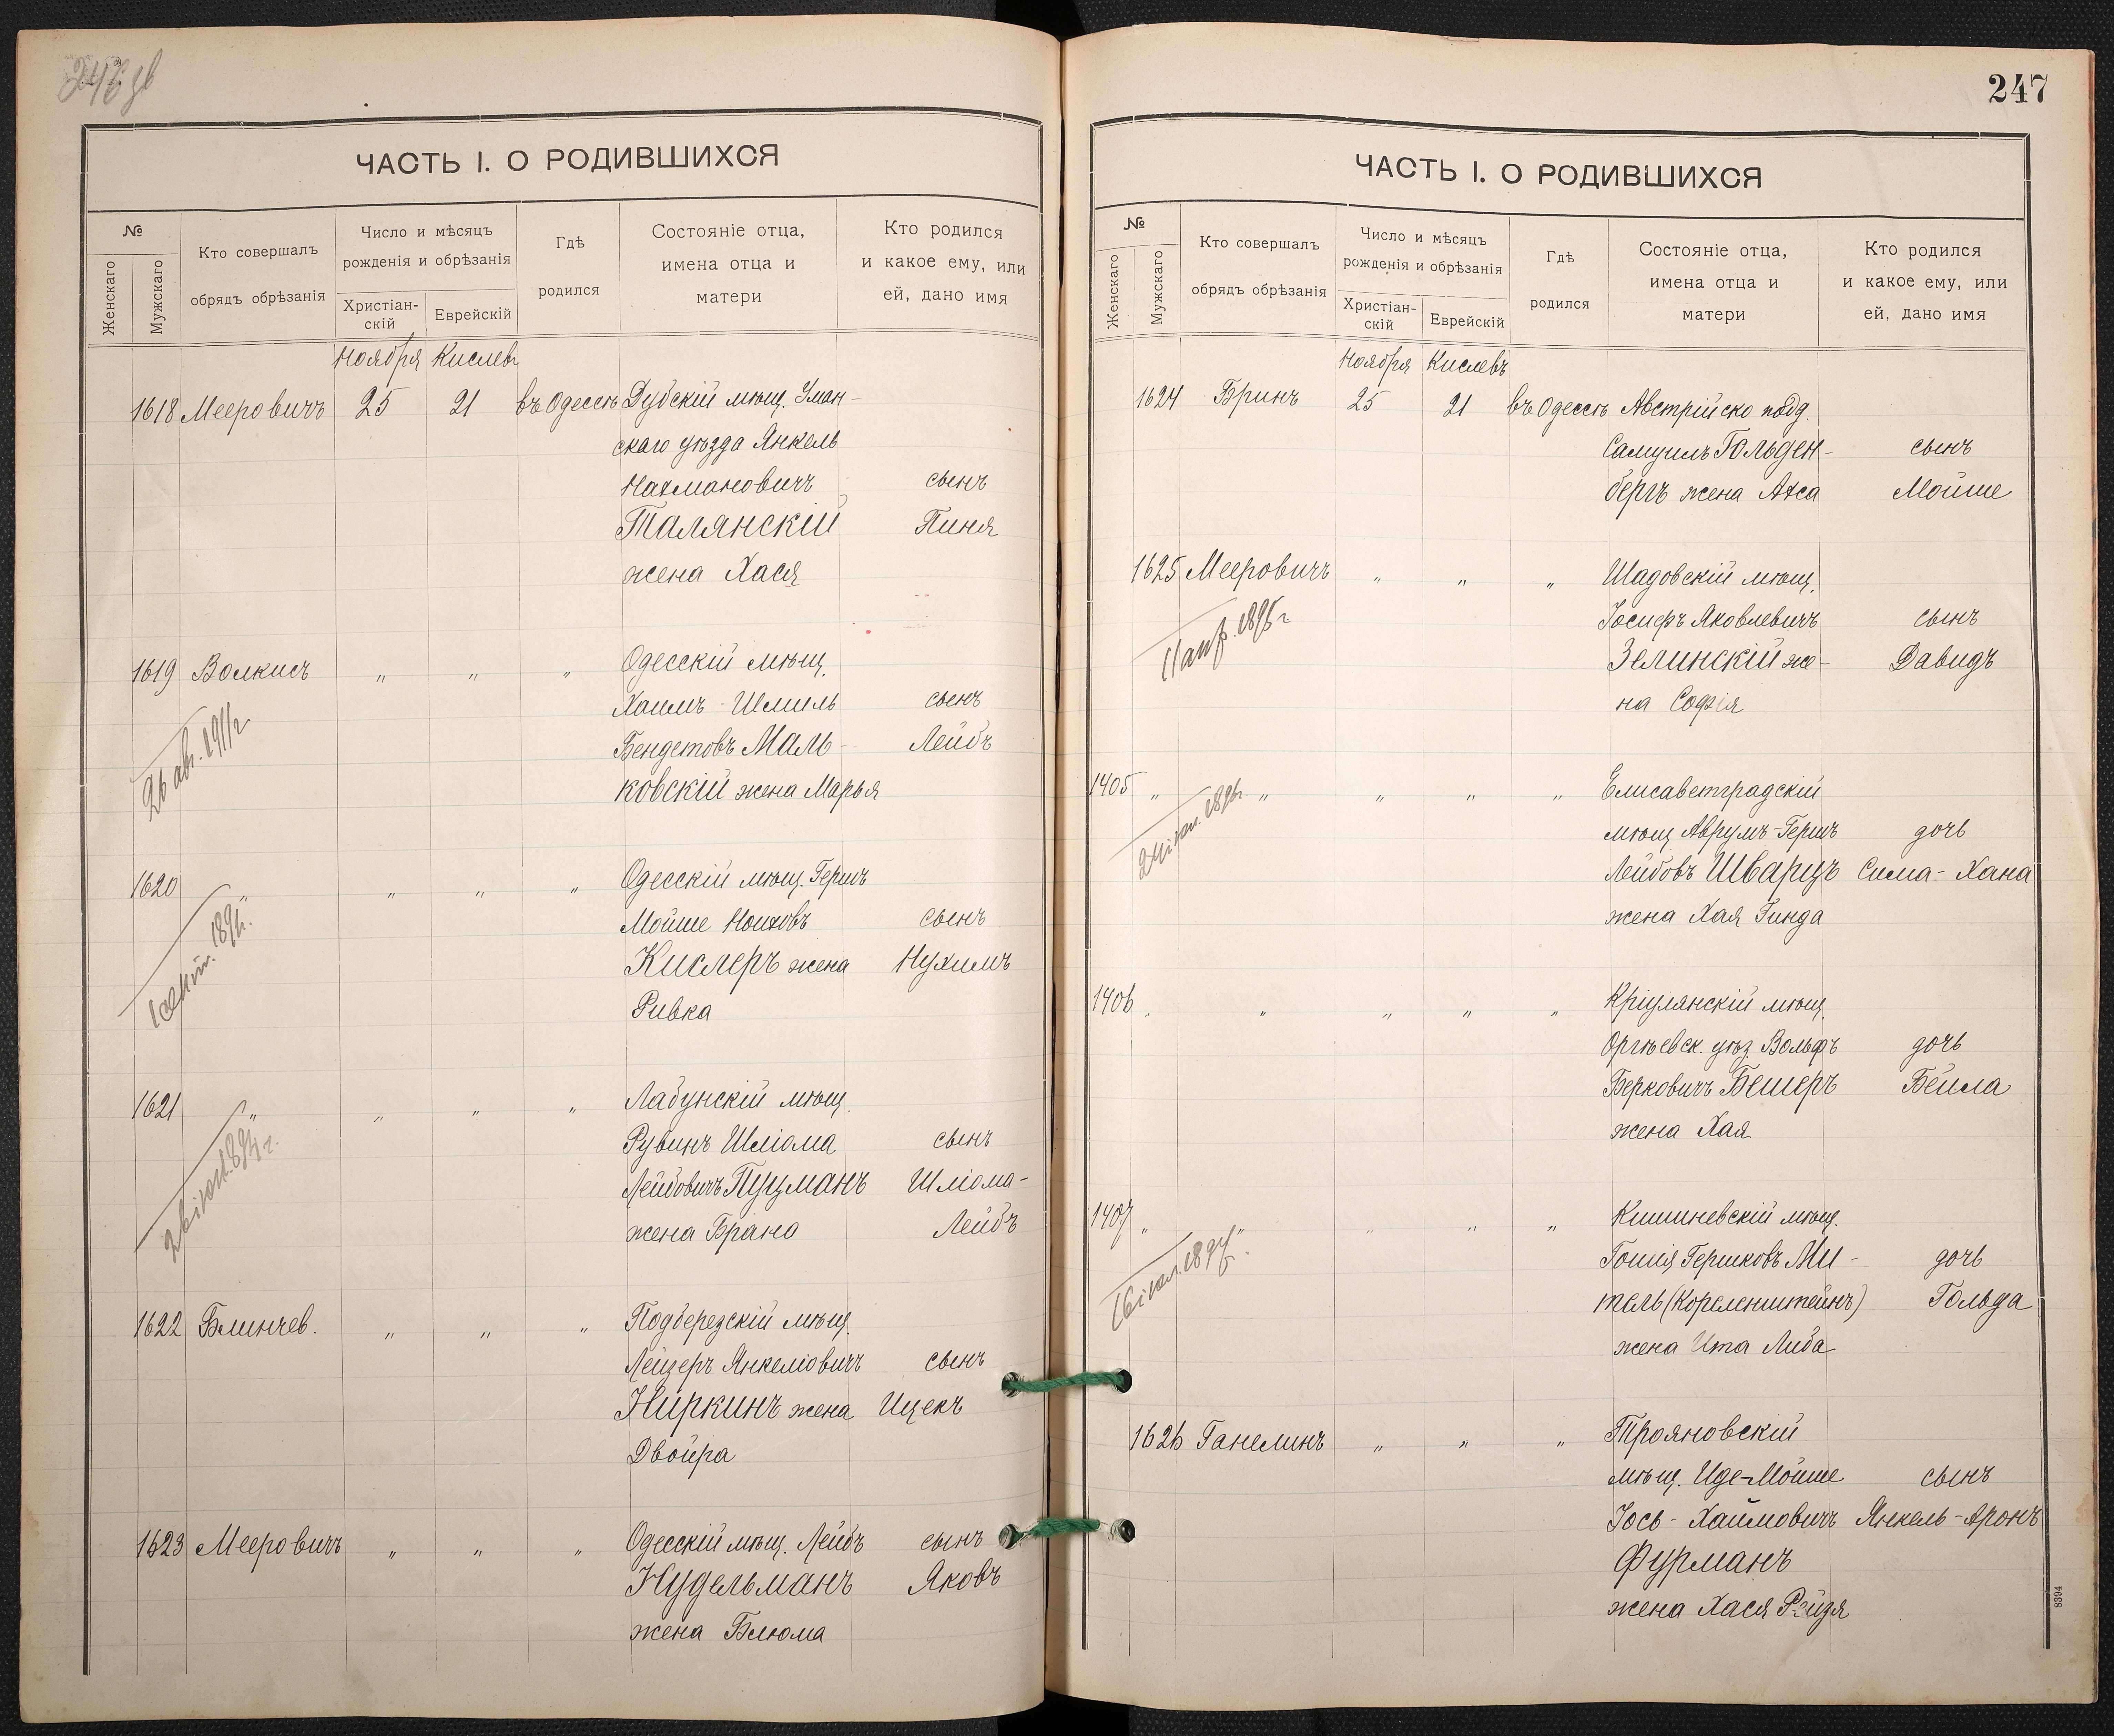 ЧАСТЬ I. О РОДИВШИХСЯ
№
Женскаго
Мужскаго
Кто совершалъ
обрядъ обрѣзанія
Число и мѣсяцъ
рожденія и обрѣзанія
Христіан-
скій
Еврейскій
Гдѣ
родился
Состояніе отца,
имена отца и
матери
Кто родился
и какое ему, или
ей, дано имя
Ноября Кислевъ
1618 Мееровичъ 25 21 въ Одессѣ Дубскій мѣщ. Уман-
скаго уѣзда Янкель
Нахмановичъ сынъ
Талянскій Пиня
жена Хася
1619 Волкисъ " " " Одесскій мѣщ.
Хаимъ-Шмиль сынъ
Бендетовъ Маль- Лейбъ
ковскій жена Марья
26 авг. 1911 г
1620 " " " " Одесскій мѣщ. Гершъ
Мойше Ноиховъ сынъ
Кислеръ жена Нухимъ
Ривка
1621 " " " " Лабунскій мѣщ.
Рувинъ Шліома сынъ
Лейбовичъ Пуцманъ Шліома-
жена Брана Лейбъ
1622 Блинчев. " " " Подберезскій мѣщ.
Лейзеръ Янкеліовичъ сынъ
Ниркинъ жена Ицекъ
Двойра
1623 Мееровичъ " " " Одесскій мѣщ. Лейбъ сынъ
Нудельманъ Яковъ
жена Блюма
247
ЧАСТЬ I. О РОДИВШИХСЯ
№
Женскаго
Мужскаго
Кто совершалъ
обрядъ обрѣзанія
Число и мѣсяцъ
рожденія и обрѣзанія
Христіан-
скій
Еврейскій
Гдѣ
родился
Состояніе отца,
имена отца и
матери
Кто родился
и какое ему, или
ей, дано имя
Ноября Кислевъ
1624 Бринъ 25 21 въ Одессѣ Австрійско подд.
Самуилъ Гольден- сынъ
бергъ жена Ахса Мойше
1625 Мееровичъ " " " Шадовскій мѣщ.
Іосифъ Яковлевичъ сынъ
Зелинскій же- Давидъ
на Софія
1405 " " " " " Елисаветградскій
мѣщ. Аврумъ-Гершъ дочь
Лейбовъ Шварцъ Сима-Хана
жена Хая Гинда
1406 " " " " " Кріулянскій мѣщ.
Оргѣевск. уѣз. Вольфъ дочь
Берковичъ Бешеръ Бейла
жена Хая
1407 " " " " " Кишиневскій мѣщ.
Гошія Гершковъ Ми- дочь
тель (Кореленштейнъ) Гольда
жена Ита Либа
1626 Ганелинъ " " " Трояновскій
мѣщ. Иде-Мойше сынъ
Іось-Хаимовичъ Янкель-Аронъ
Фурманъ
жена Хася Рейзя
8394